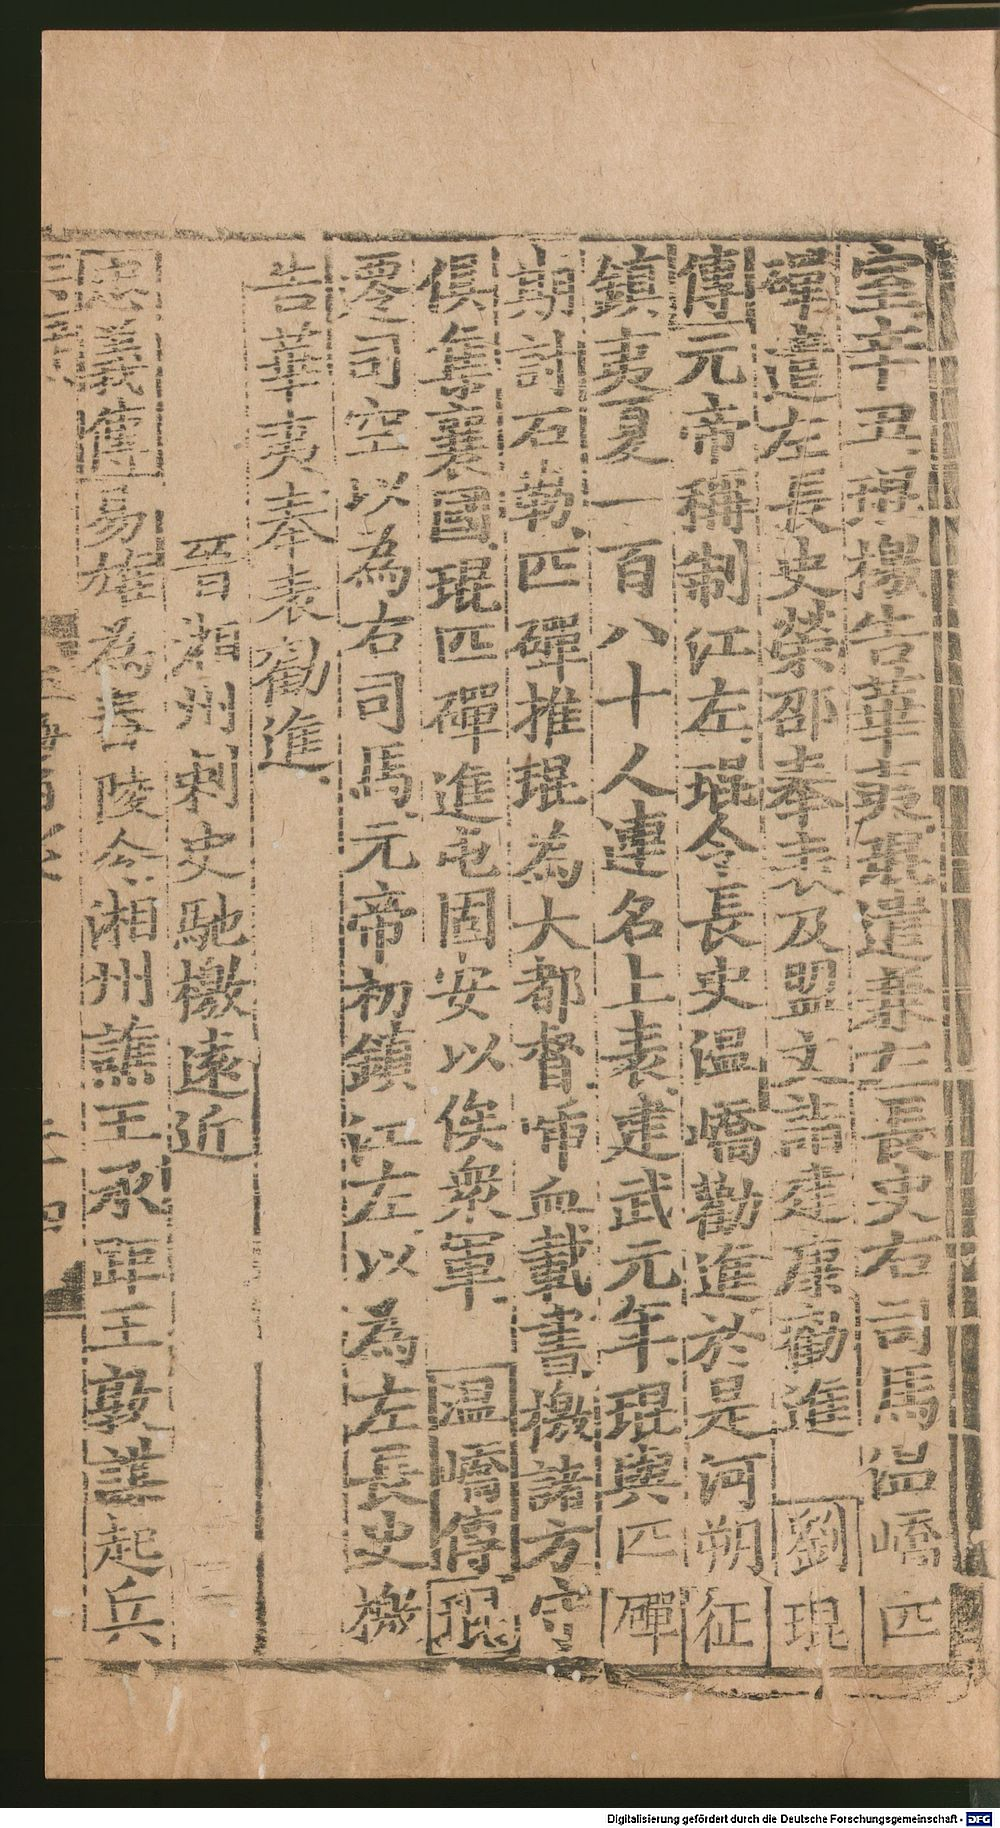 室辛丑琨檄告華夷琨遣兼左長史右司馬溫嶠匹
磾遣左長史榮邵奉表及盟文詣建康勸進 劉琨
傳元帝稱制江左琨令長史溫嶠勸進於是河朔征
鎮夷夏一百八十人連名上表建武元年琨與匹磾
期討石勒匹磾推琨為大都督啑血載書檄諸方守
俱集襄國琨匹磾進屯固安以俟衆軍 溫嶠傳琨
遷司空以為右司馬元帝初鎮江左以為左長史檄
告華夷奉表勸進
晉湘州刺史馳檄遠近
忠義傳易雄為舂陵令湘州譙王承距王敦謀起兵
Digitalisierung gefördert durch die Deutsche Forschungsgemeinschaft - DFG